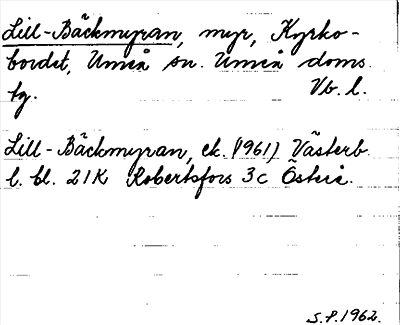 Lill-Bäckmyran, myr, Kyrko-
bordet, Umeå sn. Umeå doms.
tg. Vb. l.
Lill-Bäckmyran, ek. (1961) Västerb.
l. bl. 21K Robertsfors 3c Österå.
S.P. 1962.